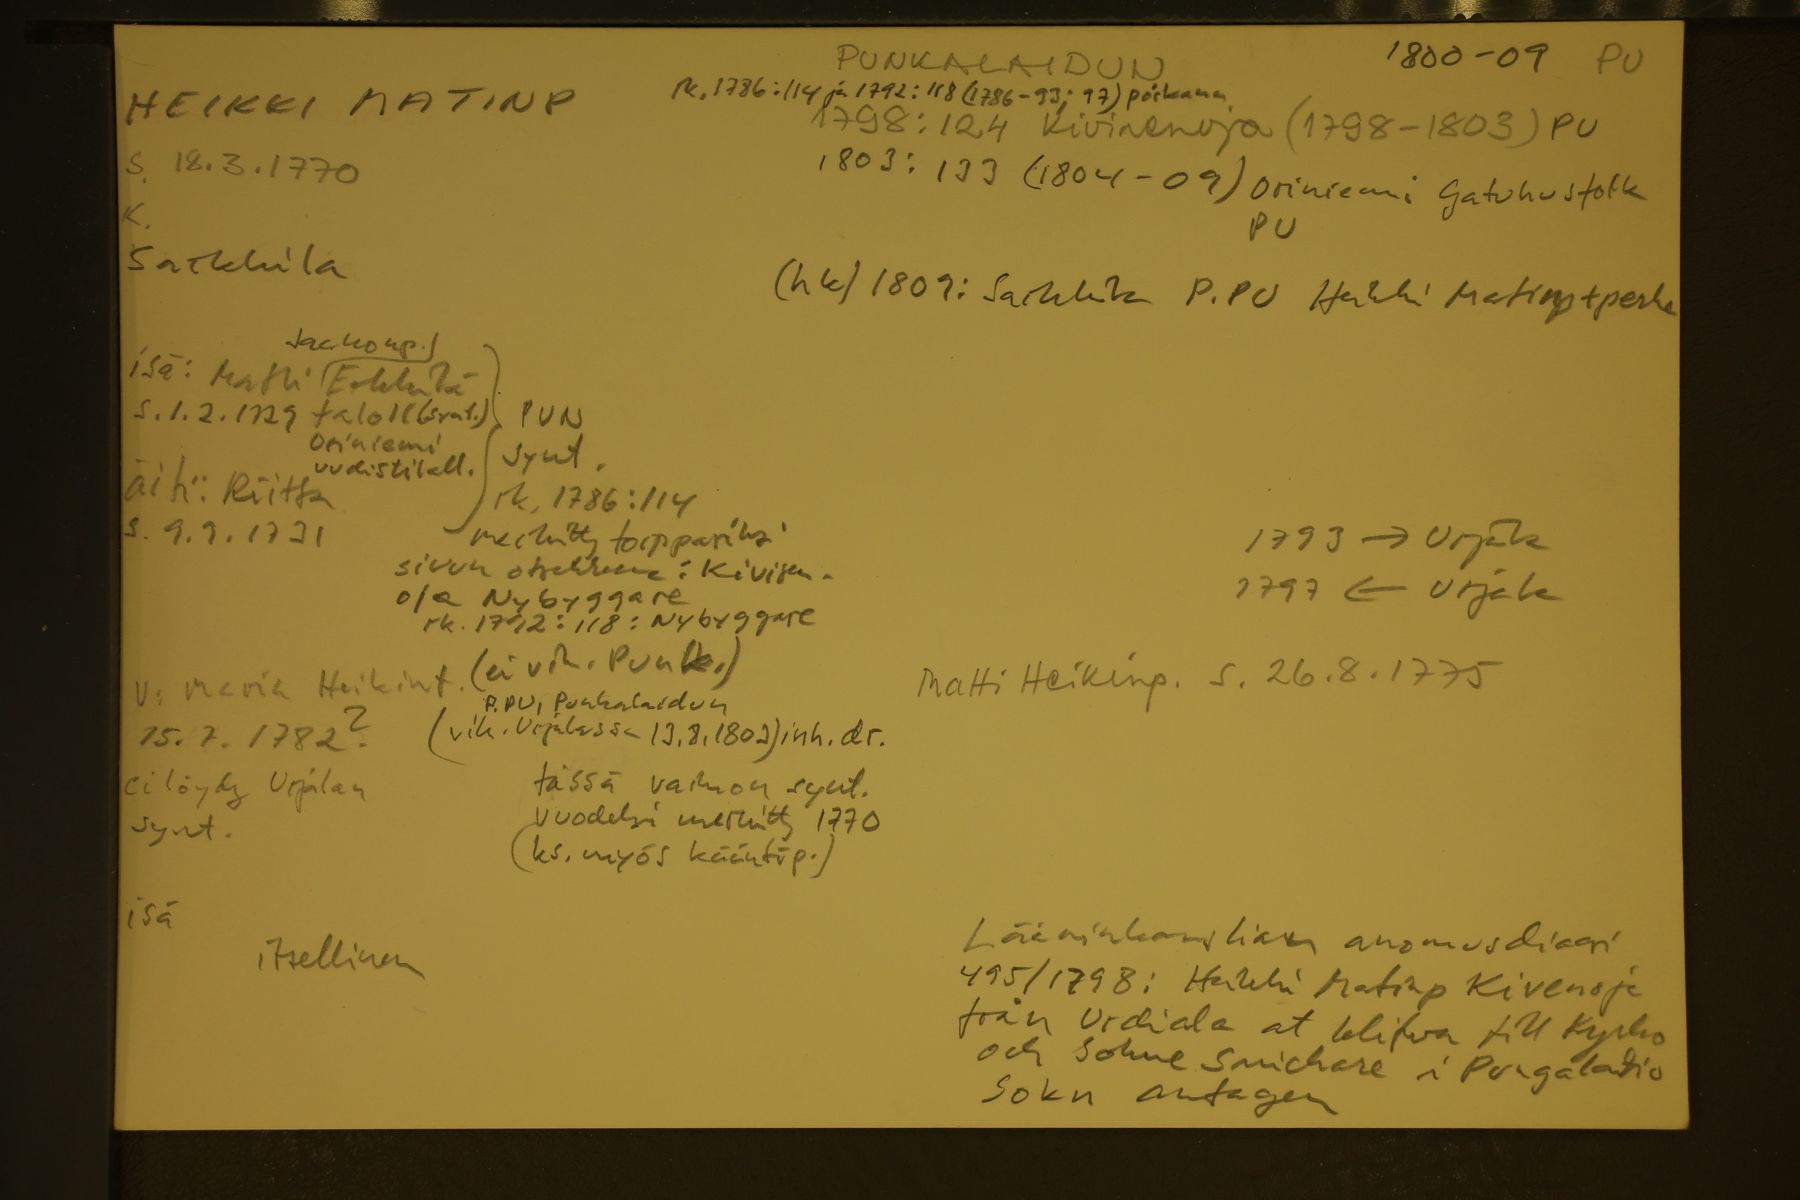 PUNKALAIDUN
1800-09 PU
HEIKKI MATINP
rk. 1786:114 ja 1792:118 (1786-93; 97) poikana
1798:124 Kivinenoja (1798-1803) PU
s. 18.3.1770
1803: 133 (1804-09) Oriniemi Gatuhusfolk
PU
K.
Sarkkila
(hk) 1809: Sarkkila P.PU Heikki Matinp + perhe
Jaakonp.
isä: Matti Erkkilä
s. 1.2.1729 taloll.
PUN
Oriniemi
uudistilall.
synt.
äiti: Riitta
rk. 1786:114
s. 9.9.1731
merkitty torppariksi
sivun otsikkona: Kivisen-
oja Nybyggare
rk. 1792:118: Nybyggare
1793 → Urjala
1797 ← Urjala
v: Maria Heikint. (ei vih. Punk.)
P.PU, Punkalaidun
15.7.1782?
(vih. Urjalassa 13.8.1803) inh. dr.
Matti Heikinp. s. 26.8.1775
ei löydy Urjalan
synt.
tässä vaimon synt.
vuodeksi merkitty 1770
(ks. myös kääntöp.)
isä
itsellinen
Lääninkanslian anomusdiaari
495/1798: Heikki Matinp Kivenoja
från Urdiala at blifva till Kyrko
och Sokne Smickare i Pungalaitio
Sokn antagen